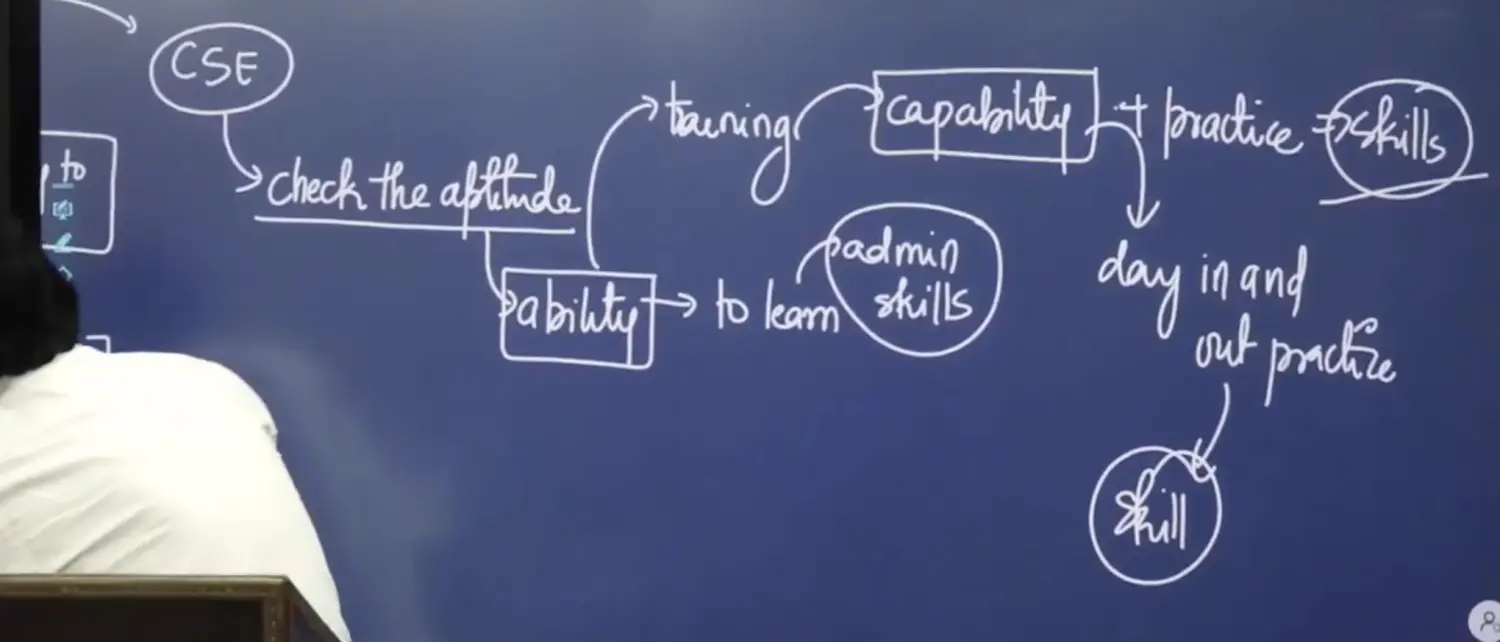 CSE
to
check the aptitude
ability
to learn
admin
skills
training
capability
+ practice
skills
day in and
out practice
skill